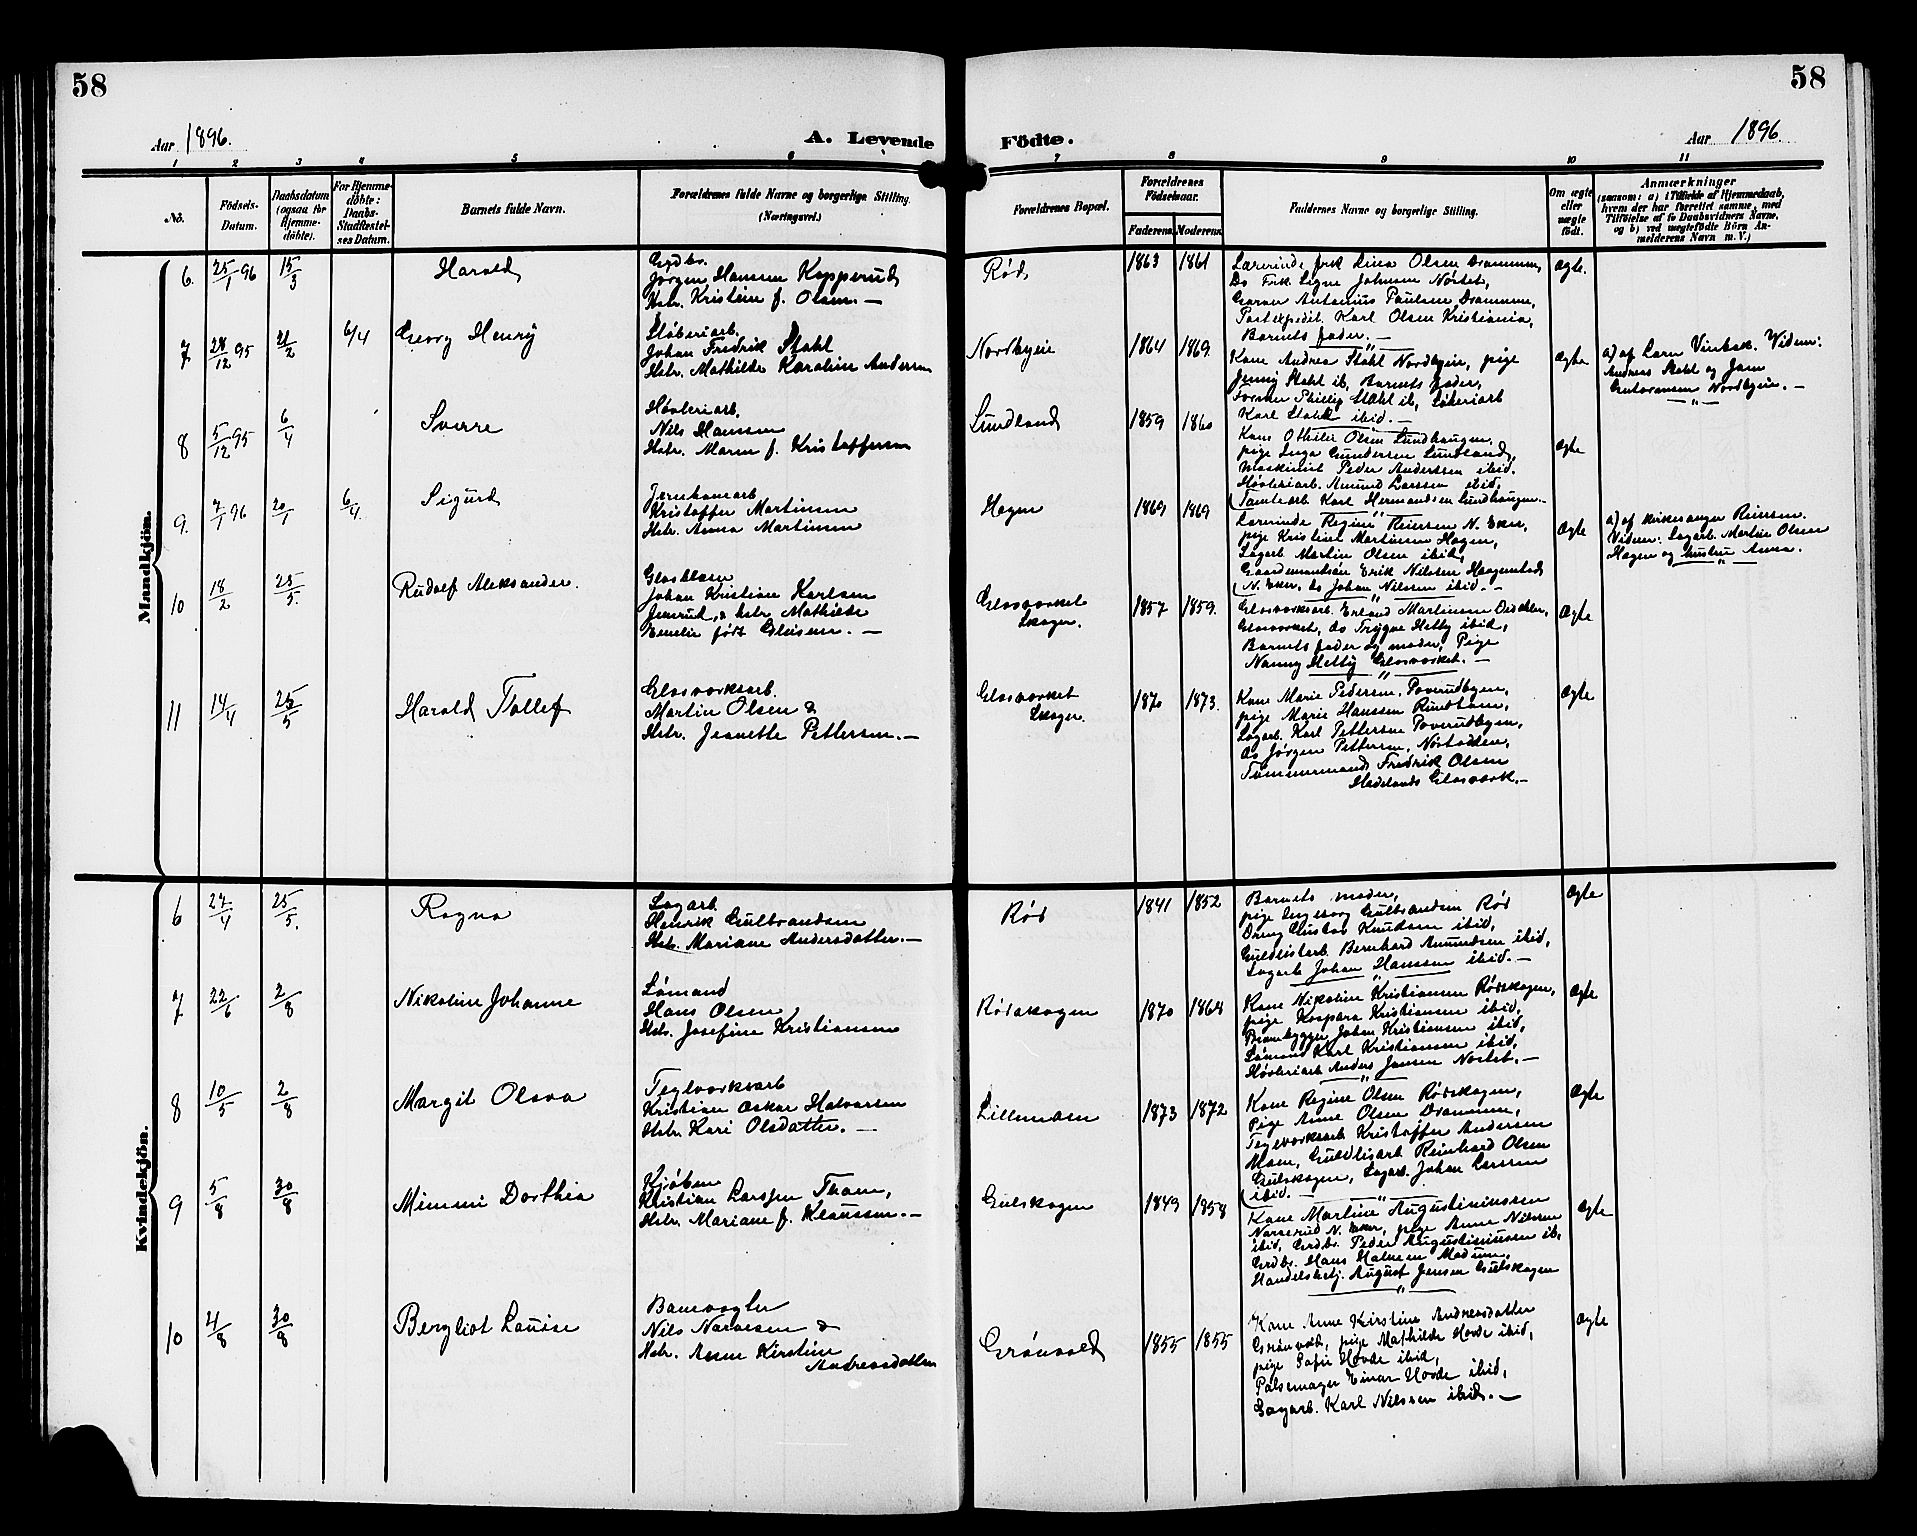 58
58
Aar 1896.
A. Levende
Födte.
Aar 1896.
1 2 3 4 5 6 7 8 9 10 11
No.
Födsels-Datum.
Daabsdatum (ogsaa for Hjemme-döbte).
For Hjemme-döbte: Daabs-Stadfæstel-ses Datum.
Barnets fulde Navn.
Forældrenes fulde Navne og borgerlige Stilling. (Næringsvei.)
Forældrenes Bopæl.
Forældrenes Födselsaar.
Faderens.
Moderens.
Faddernes Navne og borgerlige Stilling.
Om ægte eller uægte födt.
Anmærkninger
(saasom: a) i Tilfælde af Hjemmedaab,
hvem der har forrettet samme, med
Tilföielse af to Daabsvidners Navne,
og b) ved uægtefödte Börn An-
melderens Navn m. V.)
Mandkjön.
6. 25/1 96 15/3
Harald
Grdbr.
Jørgen Hansen Kopperud
Hstr. Kristine f. Olsen. —
Rød
1863 1861
Lærerinde frk Lina Olsen Drammen,
Do Frk. Signe Johnsen Nøstet,
Garver Antonius Paulsen Drammen,
Postexpedit. Karl Olsen Kristiania,
Barnets fader. —
ægte.
7 28/12 95 21/2 6/4
Georg Henry
Støberiarb.
Johan Fredrik Stahl
Hstr. Mathilde Karoline Andersen
Nordbyeie
1864 1869.
Kone Andrea Stahl Nordbyeie, pige
Jenny Stahl ib, Barnets fader,
Former Phillip Stahl ib, Støberiarb
Karl Stahl ibid. —
ægte
a) af Lars Vinbak. Vidne:
Andreas Stahl og Jens
Gulbransen Nordbyeie. —
8 5/12 95 6/4
Sverre
Høvleriarb.
Nils Hansen
Hstr. Maren f. Kristoffersen
Lundland
1859 1860
Kone Othilie Olsen Lundhaugen,
pige Inga Gundersen Lundland,
Maskinist Peder Anderssen ibid.
Høvleriarb. Amund Larssen ibid,
Tomtearb Karl Hermandsen Lundhaugen. —
ægte
9. 7/1 96 20/1 6/4
Sigurd
Jernbanearb
Kristoffer Martinsen
Hstr. Anna Martinsen
Hagen
1869 1869
Lærerinde Regine Reiersen N. Eker,
pige Kristine Martinsen Hagen,
Sagarb Martin Olsen ibid,
Gaardmandssøn Erik Nilsen Haagenstad
N. Eker, do Johan Nilsen ibid. —
ægte
a) af Kirkesanger Reiersen.
Vidne: Sagarb. Martin Olsen
Hagen og hustru Anna.
10 18/2 25/5.
Rudolf Aleksander.
Glasblæser
Johan Kristian Karlsen
Jemrud, & hstr Mathilde
Emelie født Ohlsen. —
Glasværket
Skoger.
1857 1859.
Glasværksarb. Erland Martinsen
Glasværket, do Trygve Hetty ibid,
Barnets fader og moder, Pige
Nanny Hetty Glasværket. —
ægte
11 14/4 25/5
Harald Tollef
Glasværksarb.
Martin Olsen &
Hstr. Jeanette Pettersen. —
Glasværket
Skoger.
1870 1873.
Kone Marie Pedersen, Poverudbyen,
pige Marie Hanssen Rundtom,
Sagarb. Karl Pettersen Poverudbyen,
do Jørgen Pettersen, Nøstodden,
Tømmermand Fredrik Olsen
Hadelands Glasværk. —
ægte
Kvindekjön.
6 27/4 25/5.
Ragna
Sagarb.
Henrik Gulbrandsen
Hstr. Mariane Andersdatter. —
Rød
1841 1852
Barnets moder,
pige Ingeborg Gulbrandsen Rød
Dreng Gustav Knudsen ibid,
Guldlistarb. Bernhard Amundsen ibid,
Sagarb Johan Hanssen ibid. —
ægte
7 22/6 2/8
Nikoline Johanne
Sømand
Hans Olsen
Hstr. Josefine Kristiansen
Rødskogen
1870 1864
Kone Nikoline Kristiansen Rødskogen,
pige Kaspara Kristiansen ibid,
Johan Kristiansen ibid,
Sømand Karl Kristiansen ibid,
Høvleriarb Anders Jansen Nøstet. —
ægte
8 10/5 2/8
Margit Olava
Teglværksarb
Kristian Oskar Halvorsen
Hstr. Kari Olsdatter. —
Lillemoen
1873 1872
Kone Regine Olsen Rødskogen,
Pige Anne Olsen Drammen,
Teglværksarb Kristoffer Andersen
Moen, Guldlisarb Reinhard Olsen
Gulskogen, Sagarb. Johan Larssen
ibid. —
ægte
9 5/8 30/8
Mimmi Dorthia
Kjøbm
Kristian Larssen Tham,
Hstr. Mariane f. Klaussen. —
Gulskogen
1849 1858
Kone Martine Augustiniussen
Narverud N. Eker, pige Anne Nilssen
ibid, Grdbr. Peder Augustiniussen ib,
Grdbr. Hans Halvorsen Modum,
Handelsbetj. August Jensen Gulskogen
ægte
10 4/8 30/8
Bergliot Louise
Banevogter
Nils Narvesen &
Hstr. Anne Kirstine
Andreasdatter
Grønvold
1855 1855
Kone Anne Kirstine Andreasdatter
Grønvold, pige Mathilde Hovde ibid,
pige Sofie Hovde ibid,
Pølsemager Einar Hovde ibid,
Sagarb. Karl Nilssen ibid. —
ægte